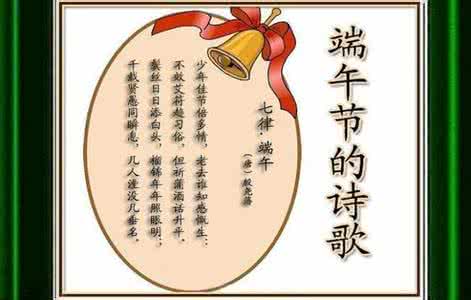 端午节的诗歌
七律·端午
（唐）殷尧藩
少年佳节倍多情，老去谁知感慨生；
不效艾符趋习俗，但祈蒲酒话升平。
鬓丝日日添白头，榴锦年年照眼明；
千载贤愚同瞬息，几人湮没几垂名。